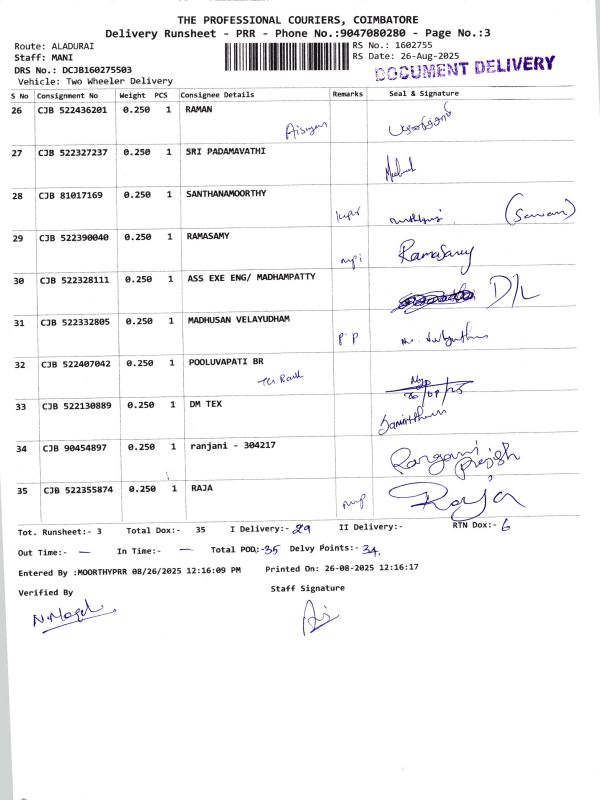 THE PROFESSIONAL COURIERS, COIMBATORE
Delivery Runsheet - PRR - Phone No.:9047080280 - Page No.:3
Route: ALADURAI
Staff: MANI
DRS No.: DCJB160275503
Vehicle: Two Wheeler Delivery
RS No.: 1602755
RS Date: 26-Aug-2025
DOCUMENT DELIVERY
S No Consignment No Weight PCS Consignee Details Remarks Seal & Signature
26 CJB 522436201 0.250 1 RAMAN
27 CJB 522327237 0.250 1 SRI PADAMAVATHI
28 CJB 81017169 0.250 1 SANTHANAMOORTHY
29 CJB 522390040 0.250 1 RAMASAMY Ramasamy
30 CJB 522328111 0.250 1 ASS EXE ENG/ MADHAMPATTY D/L
31 CJB 522332805 0.250 1 MADHUSAN VELAYUDHAM
32 CJB 522407042 0.250 1 POOLUVAPATI BR
33 CJB 522130889 0.250 1 DM TEX
34 CJB 90454897 0.250 1 ranjani - 304217
35 CJB 522355874 0.250 1 RAJA Raja
Tot. Runsheet:- 3 Total Dox:- 35 I Delivery:- 29 II Delivery:- RTN Dox:- 6
Out Time:- — In Time:- — Total POD:-35 Delvy Points:- 34
Entered By :MOORTHYPRR 08/26/2025 12:16:09 PM Printed On: 26-08-2025 12:16:17
Verified By Staff Signature